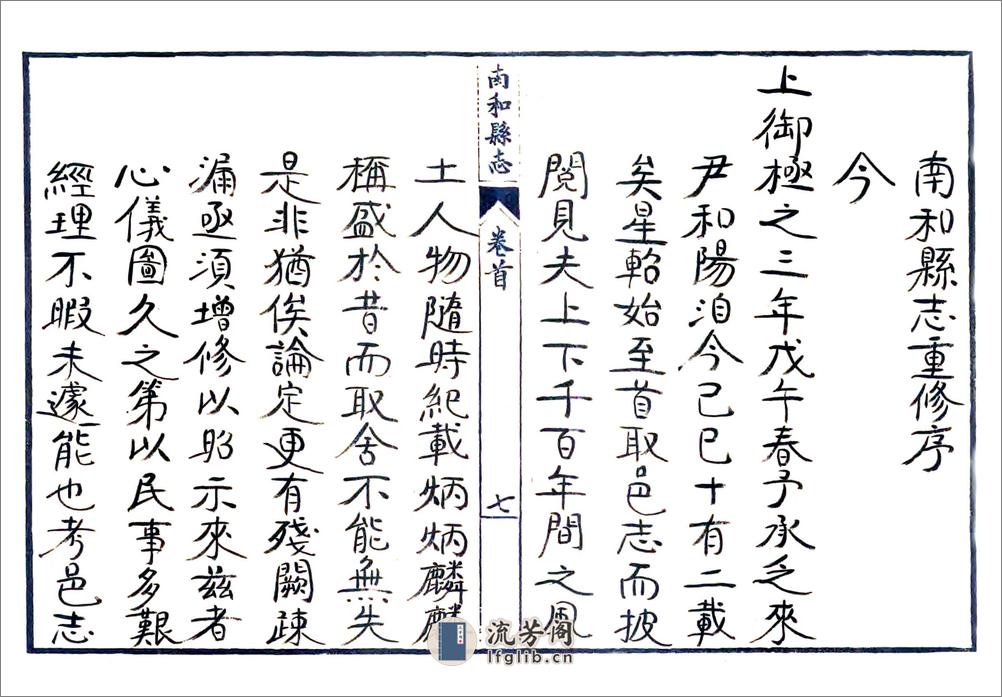 南和縣志重修序
今
上御極之三年戊午春予承乏來
尹和陽洎今己巳十有二載
矣星軺始至首取邑志而披
閱見夫上下千百年間之風
南和縣志
卷首
七
土人物隨時紀載炳炳麟麟
稱盛於昔而取舍不能無失
是非猶俟論定更有殘闕踈
漏亟須增修以昭示來茲者
心儀圖久之第以民事多艱
經理不暇未遽能也考邑志
流芳阁
lfglib.cn